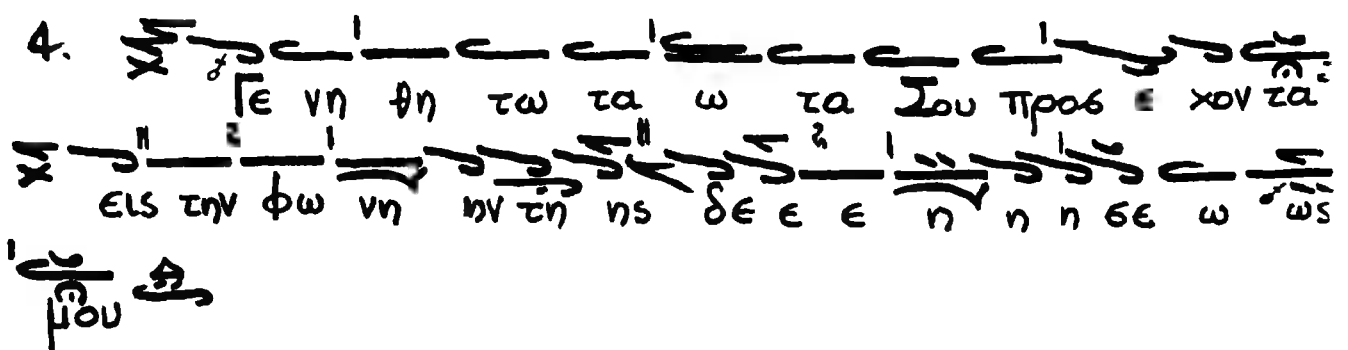 4. Γε νη θη τω τα ω τα Σου προσ ε χον τα
εις την φω νη ην τη ης δε ε ε η η η σε ω ως
μου